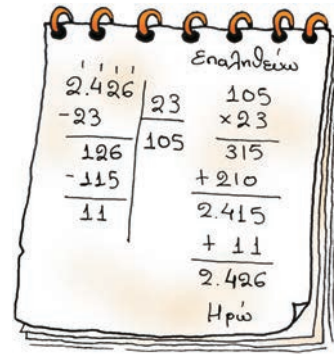 Επαληθεύω
2.426 23
-23 105
126
-115
11
105
×23
315
+210
2.415
+ 11
2.426
Ηρώ